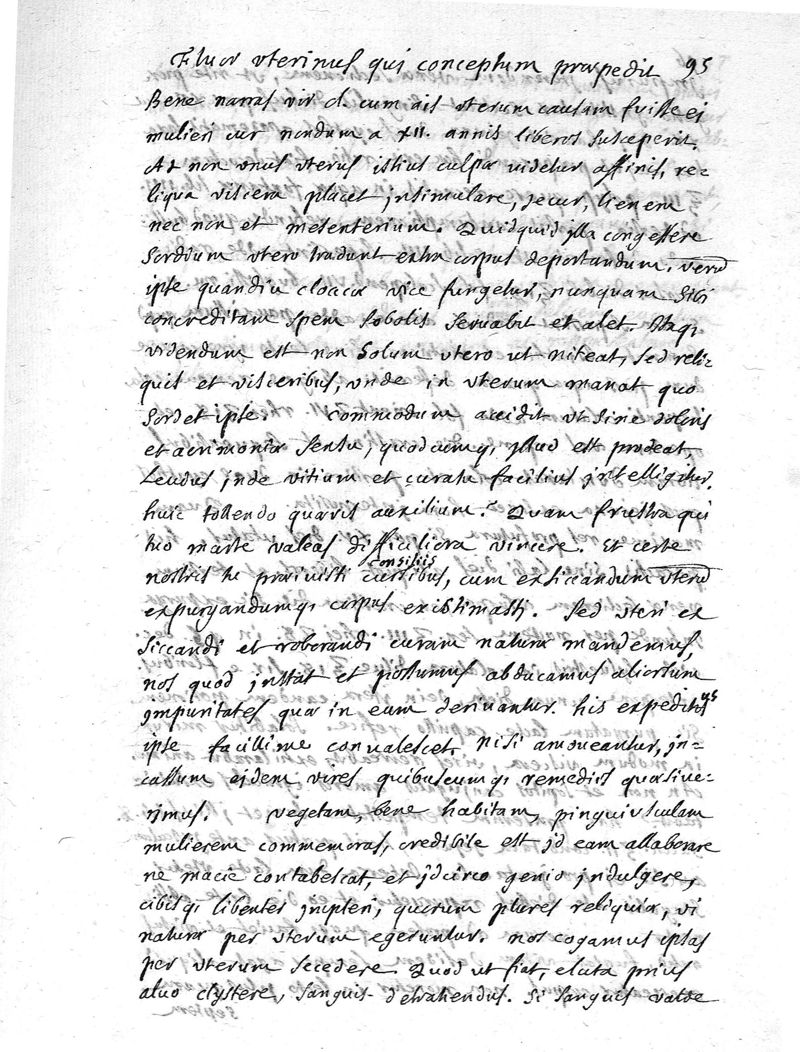 Fluor vterinus qui conceptum præpedit 95
Bene narras vir cl. cum ais vterum causam fuisse ej
mulieri cur nondum a XII. annis liberos susceperit.
At non vnus vterus istius culpæ videtur affinis, re-
liqua viscera placet jnsimulare, jecur, lienem
nec non et mesenterium. Quidquid jlla congessere
sordium vtero tradunt extra corpus deportandum. verũ
ipse quandiu cloacæ vice fungetur, nunquam sibi
concreditam spem sobolis seruabit et alet. Itaq;
videndum est non solum vtero ut niteat, sed reli-
quis et visceribus, vnde in vterum manat quo
sordet ipse. Commodum accidit vt sine doloris
et acrimoniæ sensu, quodcumq; jllud est prodeat,
Leuius jnde vitium et curatu facilius jntelligitur.
huic tollendo quæris auxilium? Quam frustra qui
tuo marte valeas difficiliora vincere. Et certe
consiliis
nostris tu præiuisti cursibus, cum exsiccandum vterũ
expurgandumq; corpus existimasti. Sed vteri ex
siccandi et roborandi curam naturæ mandemus,
nos quod jnstat et possumus abducamus aliorsum
jmpuritates quæ in eum deriuantur. his expeditus
ipse facillime conualescet, nisi amoueantur, jn-
cassum ejdem vires quibuscumq; remediis quæsiue-
rimus. vegetam, bene habitam, pinguiusculam
mulierem commemoras, credibile est jd eam allaborare
ne macie contabescat, et jdcirco genio jndulgere,
cibisq; libenter jmpleri, quorum plures reliquiæ, vi
naturæ per vterum egeruntur. nos cogamus ipsas
per vterum secedere. Quod ut fiat, eluta prius
aluo clystere, sanguis detrahendus. Si sanguis valde